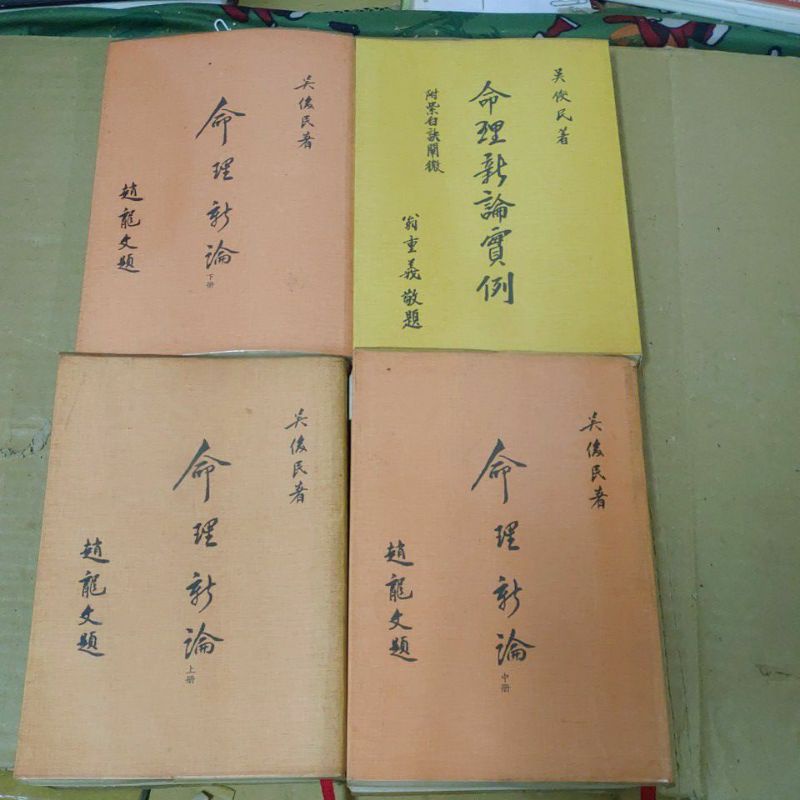 吳俊民著
命理新論
下册
趙龍文題
吳俊民著
命理新論實例
附紫白訣闡微
翁重義敬題
吳俊民著
命理新論
上册
趙龍文題
吳俊民著
命理新論
中册
趙龍文題